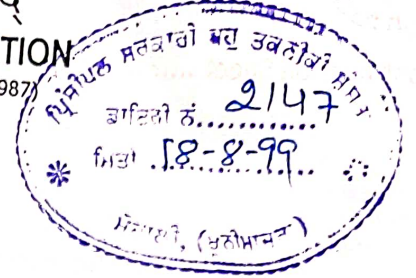 TION
987)
ਪ੍ਰਿੰਸੀਪਲ ਸਰਕਾਰੀ ਬਹੁ ਤਕਨੀਕੀ
ਡਾਇਰੀ ਨੰ. 2147
ਮਿਤੀ 18-8-99